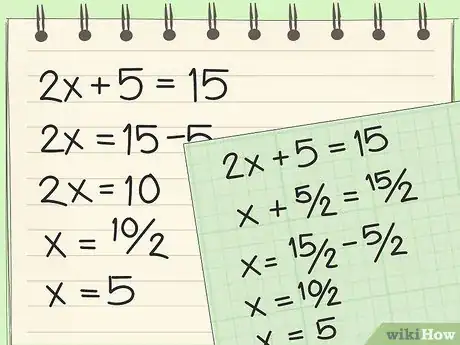 2x + 5 = 15
2x = 15 - 5
2x = 10
x = 10/2
x = 5
2x + 5 = 15
x + 5/2 = 15/2
x = 15/2 - 5/2
x = 10/2
x = 5
wikiHow